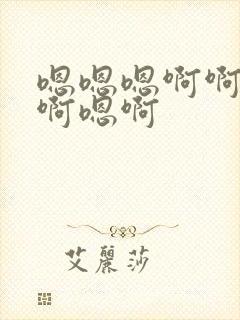 嗯嗯嗯啊啊
啊嗯啊
艾麗莎